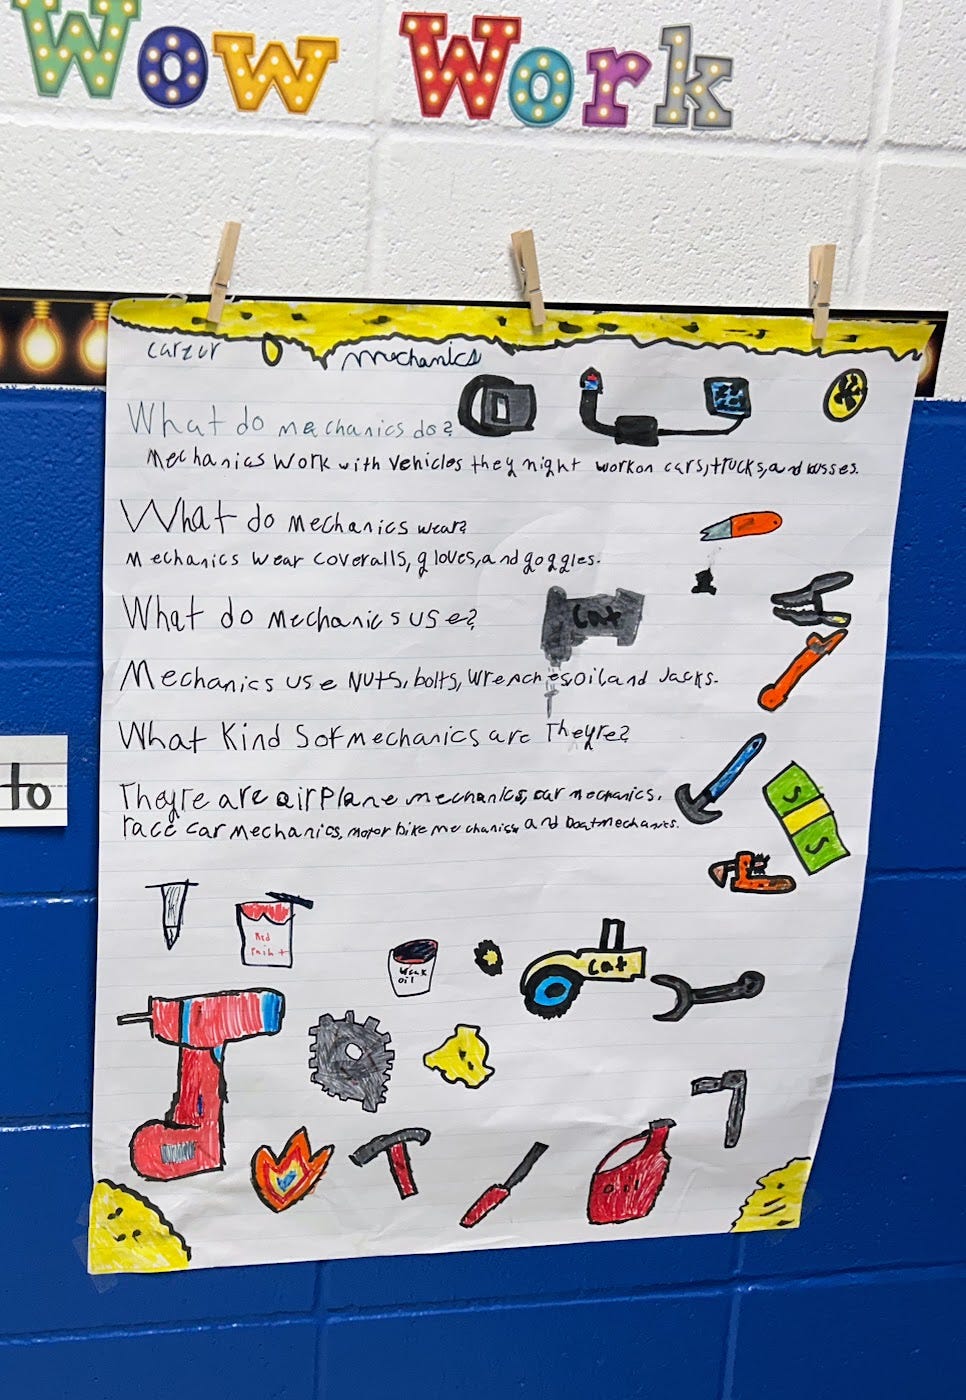 Wow Work
carzur mechanics
What do mechanics do?
Mechanics work with vehicles they night work on cars, trucks, and busses.
What do mechanics wear?
Mechanics wear coveralls, gloves, and goggles.
cat
What do mechanics use?
Mechanics use nuts, bolts, wrenches, oil and Jacks.
What Kinds of mechanics are They're?
They're are airplane mechanics, car mechanics,
race car mechanics, motor bike mechanics, and boat mechanics.
to
S
S
Red
Paint
oil
cat
oil